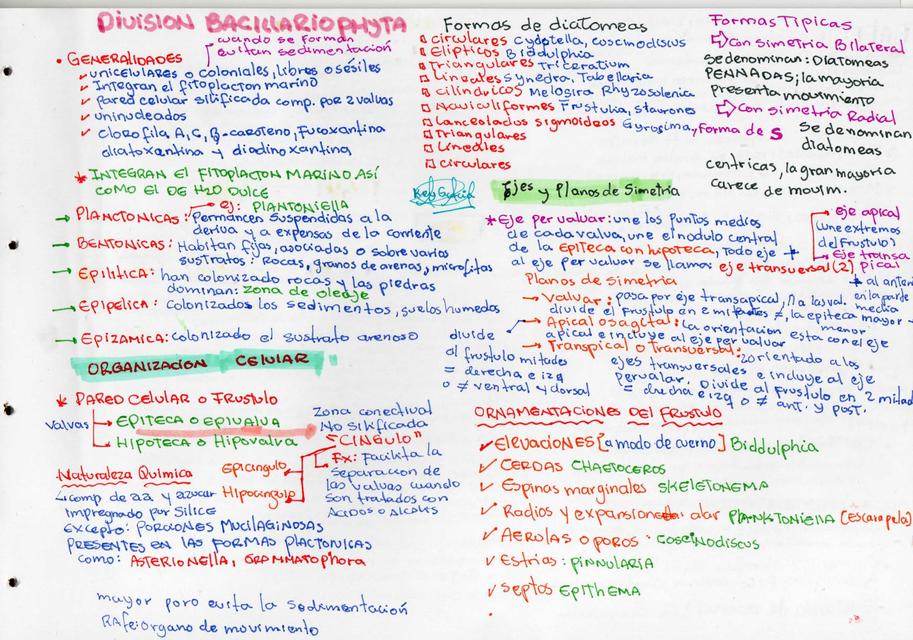 DIVISION BACILLARIOPHYTA
cuando se forman
evitan sedimentación
• GENERALIDADES
✓ unicelulares o coloniales, libres o sésiles
✓ Integran el fitoplacton marino
✓ Pared celular silificada comp. por 2 valvas
✓ uninudeados
✓ clorofila A, C, β-caroteno, Fucoxantina
diatoxantina y diadinoxantina
* INTEGRAN EL FITOPLACTON MARINO ASÍ
COMO EL DE H2O DULCE
ej: PLANTONIELLA
→ PLANCTONICAS: Permancen suspendidas a la
deriva y a expensas de la corriente
→ BENTONICAS: Habitan fijas, asociadas o sobre varios
sustratos: Rocas, granos de arenas, microfitas
→ EPILITICA: han colonizado rocas y las piedras
dominan: zona de oleaje
→ EPIPELICA: colonizados los sedimentos, suelos humedos
→ EPIZAMICA: colonizado el sustrato arenoso
ORGANIZACION CELULAR
* PARED CELULAR O FRUSTULO
Valvas
EPITECA O EPIVALVA
HIPOTECA O HIPOVALVA
Zona conectival
No silificada
"CINGULO"
Fx: Facilita la
separacion de
las valvas cuando
son tratados con
Acidos o Alcalis
Epicingulo
Hipocingulo
Naturaleza Quimica
comp de aa y azucar
impregnado por Silice
Excepto: PORCIONES MUCILAGINOSAS
PRESENTES EN LAS FORMAS PLACTONICAS
como: ASTERIONELLA, GRAMMATOPHORA
mayor poro evita la sedimentación
RAfe: organo de movimiento
Formas de diatomeas
circulares Cydotella, coscinodiscus
Elipticos Biddulphia
Triangulares Triceratium
Lineales Synedra, Tabellaria
Cilindricos Melosira Rhyzosolenia
Naviculiformes Frustulia, staurones
Lanceolados sigmoideos Gyrosima, forma de S
Triangulares
Lineales
circulares
Formas Típicas
⇨ con simetria Bilateral
se denominan: Diatomeas
PENNADAS; la mayoria
presenta movimiento
⇨ Con simetria Radial
se denominan
diatomeas
centricas, la gran mayoria
carece de movim.
Ejes y Planos de Simetria
* Eje pervaluar: une los puntos medios
de cada valva, une el nodulo central
de la epiteca con hipoteca, Todo eje +
al eje per valuar se llama: eje transversal (2)
eje apical
(une extremos
del Frustulo)
eje transa
pical
Planos de Simetria
→ Valvar: pasa por eje transapical, // a las val.
divide el frustulo en 2 mitades ≠, la epiteca mayor
menor
→ Apical o sagital: la orientacion esta con el eje
apical e incluye al eje per valuar
divide
al frustulo mitades
= derecha e izq
o ≠ ventral y dorsal
→ Transpical o Transversal: orientado a los
ejes transversales e incluye al eje
pervalar. Divide al Frustulo en 2 mitad
= derecha e izq o ≠ ant. y post.
ORNAMENTACIONES DEL FRUSTULO
✓ ELEVACIONES [a modo de cuerno] Biddulphia
✓ CERDAS CHAETOCEROS
✓ Espinas marginales SKELETONEMA
✓ Radios y expansion alar PLANKTONIELLA (escarapela)
✓ AEROLAS O POROS: COSCINODISCUS
✓ Estrias: PINNULARIA
✓ Septos EPITHEMA